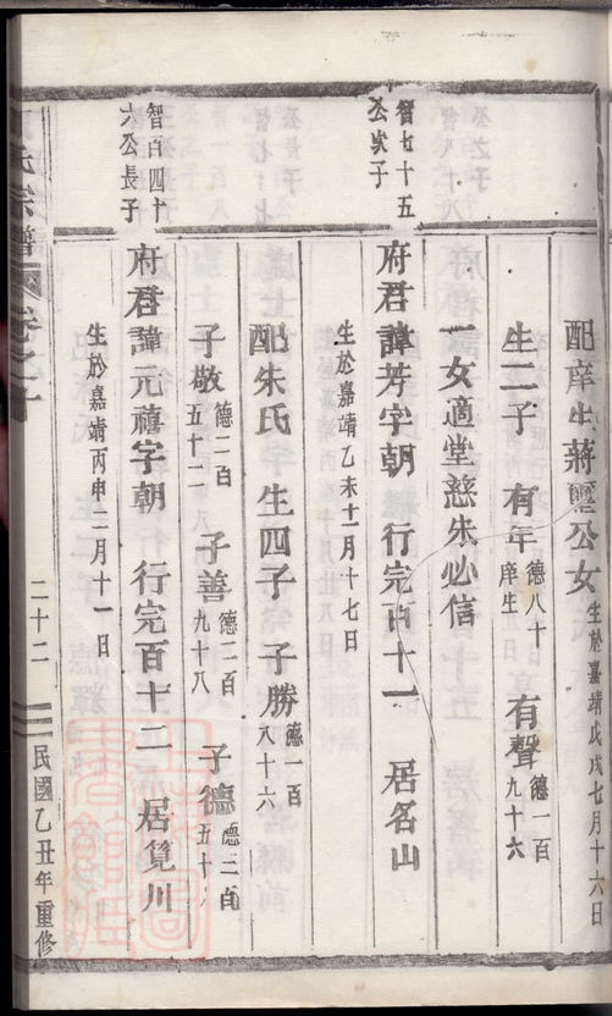 配庠生蔣㻞公女 生於嘉靖戊戌七月十六日
生二子 有年 德八十 庠生 有聲 德一百九十六
一女適堂慈朱必信
智七十五公次子
府君諱芳字朝 行完百十一 居名山
生於嘉靖乙未十一月十七日
配朱氏 生四子 子勝 德一百八十六
子敬 德二百五十二 子善 德二百九十八 子德 德三百五十
智百四十六公長子
府君諱元禧字朝 行完百十二 居筧川
生於嘉靖丙申二月十一日
氏宗譜 卷之十 二十二 民國乙丑年重修